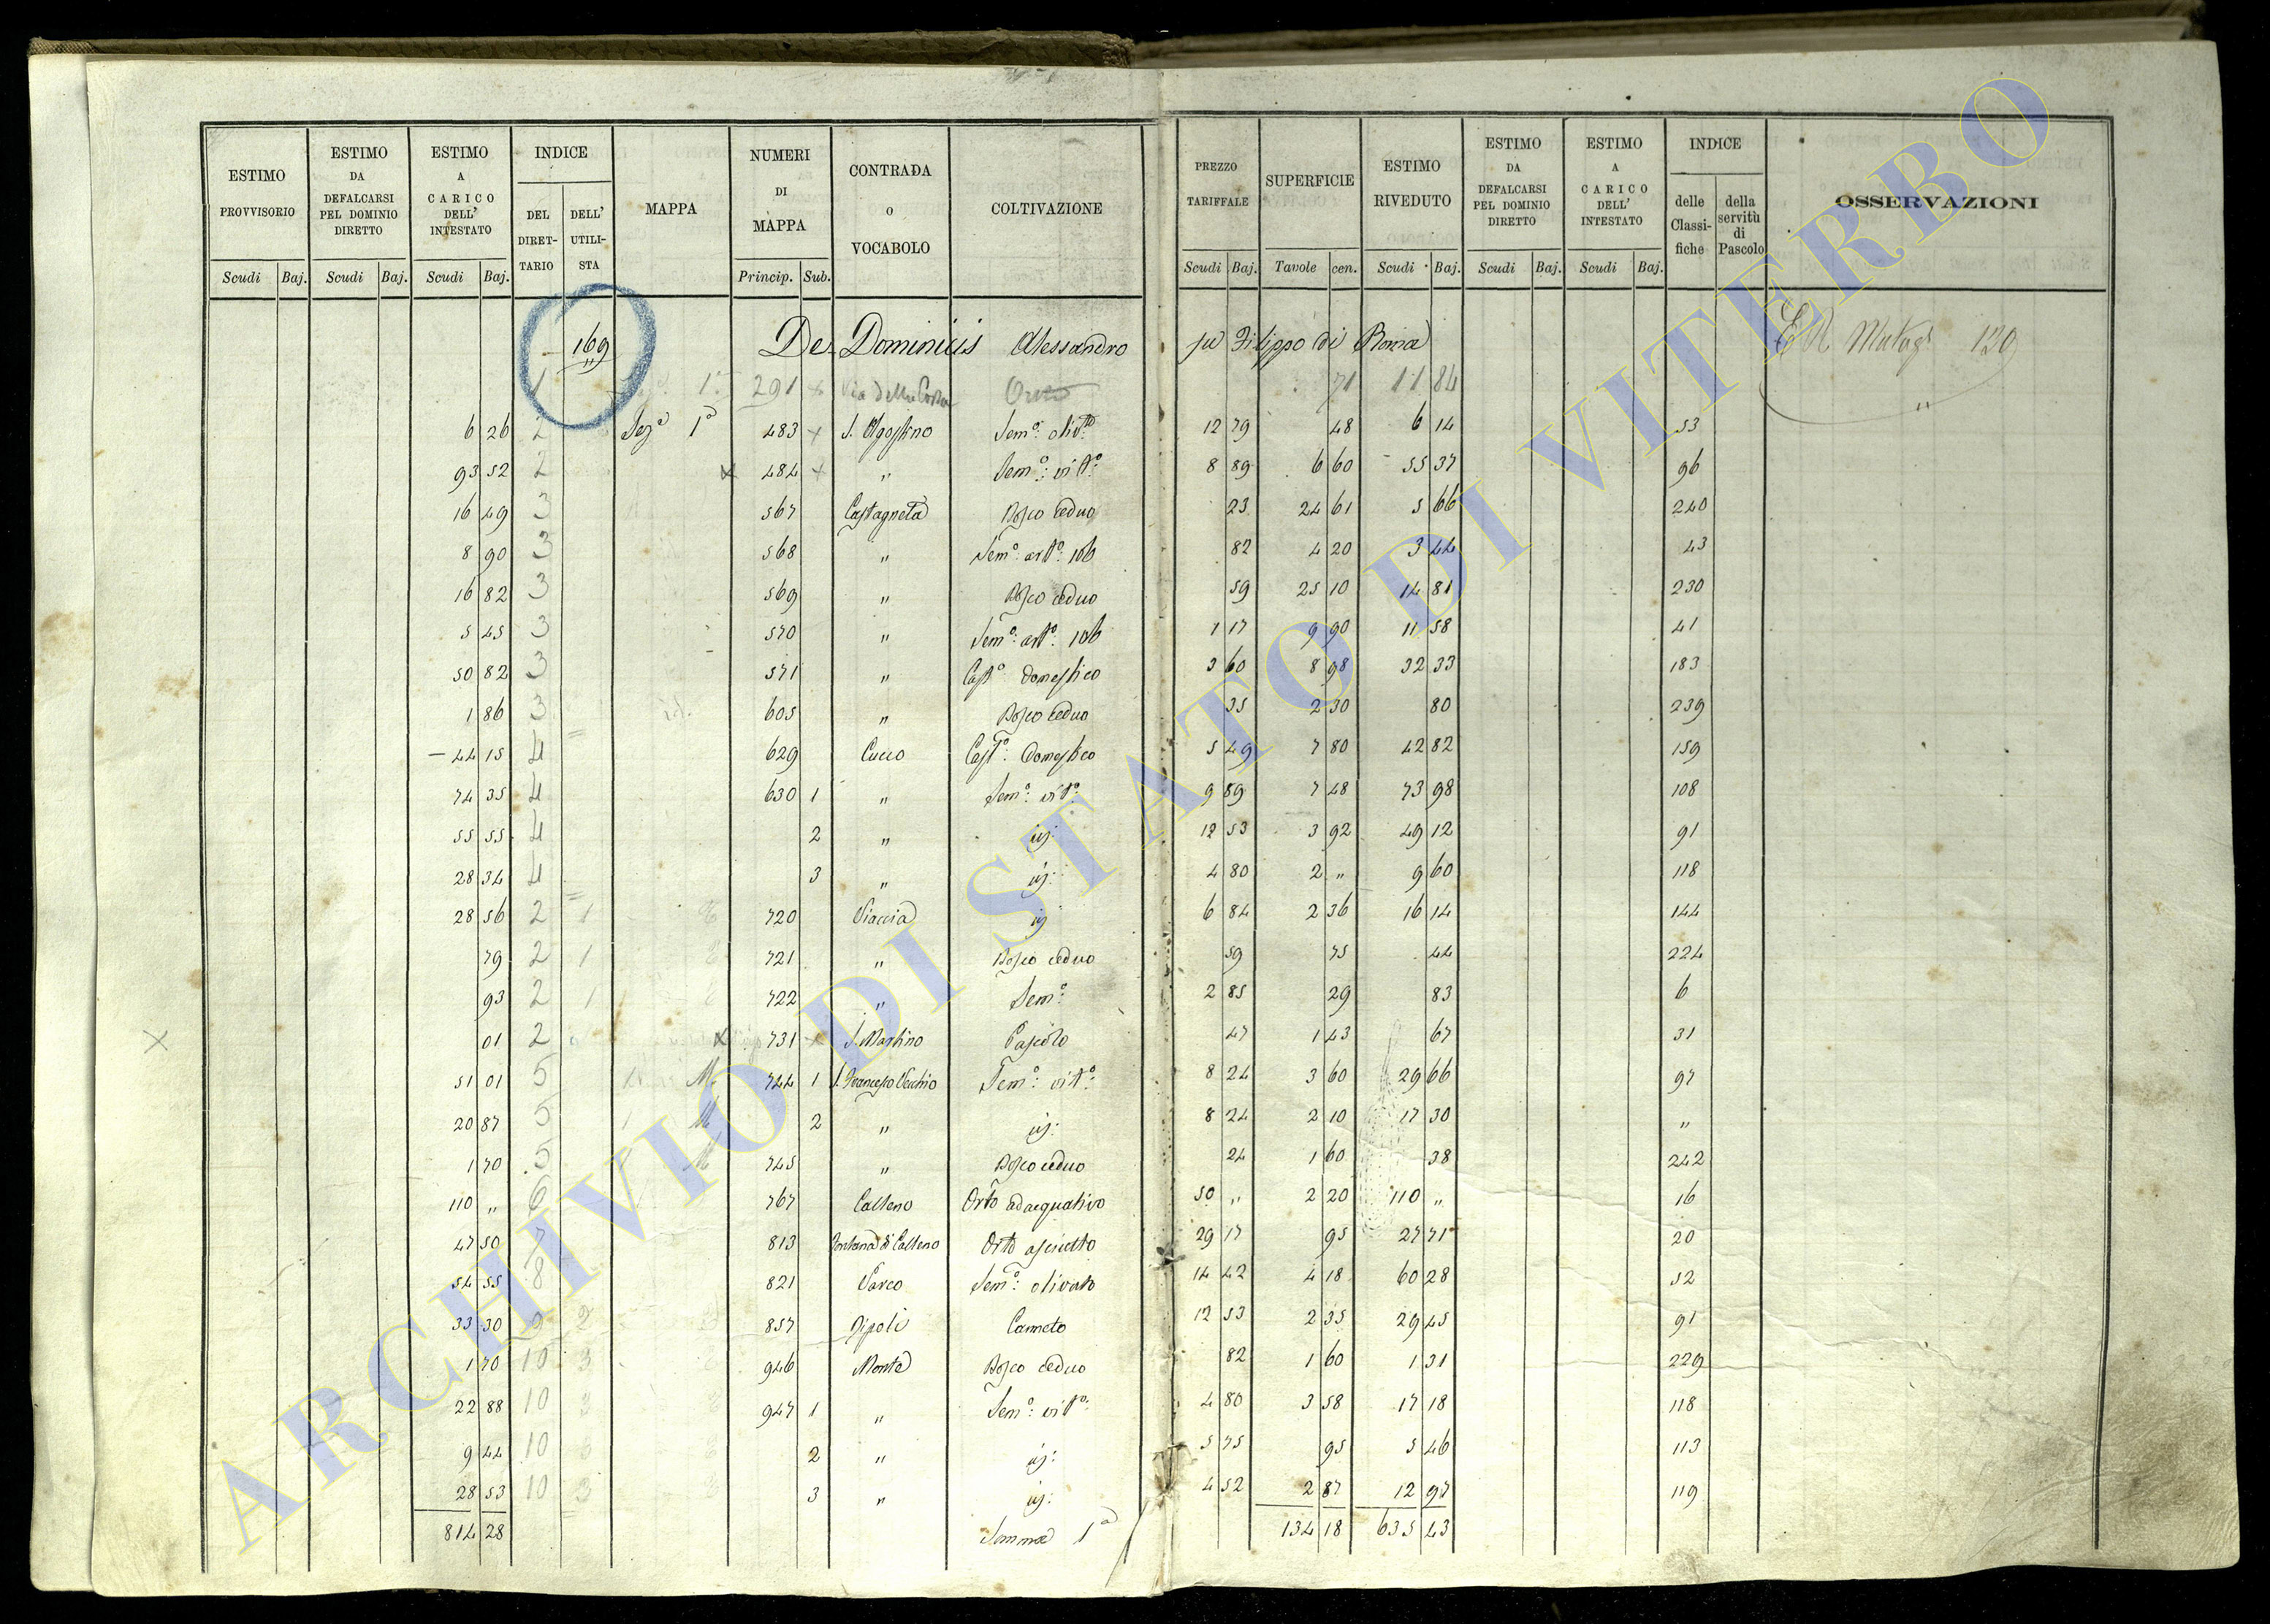 ESTIMO PROVVISORIO Scudi Baj. | ESTIMO DA DEFALCARSI PEL DOMINIO DIRETTO Scudi Baj. | ESTIMO A CARICO DELL' INTESTATO Scudi Baj. | INDICE DEL DIRETTARIO DELL' UTILISTA | MAPPA | NUMERI DI MAPPA Princip. Sub. | CONTRADA o VOCABOLO | COLTIVAZIONE | PREZZO TARIFFALE Scudi Baj. | SUPERFICIE Tavole cen. | ESTIMO RIVEDUTO Scudi Baj. | ESTIMO DA DEFALCARSI PEL DOMINIO DIRETTO Scudi Baj. | ESTIMO A CARICO DELL' INTESTATO Scudi Baj. | INDICE delle Classifiche della servitù di Pascolo | OSSERVAZIONI
169 De Dominicis Alessandro fu Filippo di Roma 120
1 1ª 291 x Via della Orto 71 11 84
6 26 2 Sezª 1ª 483 x S. Agostino Semº: olivtº: 12 79 48 6 14 53
93 52 2 x 484 x " Semº: vitº: 8 89 6 60 55 37 96
16 49 3 567 Castagneta Bosco ceduo 23 24 61 5 66 240
8 90 3 568 " Semº: artº: 106 82 4 20 3 44 43
16 82 3 569 " Bosco ceduo 59 25 10 14 81 230
5 45 3 570 " Semº: artº: 106 1 17 9 90 11 58 41
50 82 3 571 " Castº: domestico 3 60 8 98 32 33 183
1 86 3 605 " Bosco ceduo 35 2 30 80 239
44 15 4 629 Cucco Castº: domestico 5 49 7 80 42 82 159
74 35 4 630 1 " Semº: vitº: 9 89 7 48 73 98 108
55 55 4 2 " id: 12 53 3 92 49 12 91
28 34 4 3 " id: 4 80 2 " 9 60 118
28 56 2 1 720 Viaccia id 6 84 2 36 16 14 144
79 2 1 721 " Bosco ceduo 59 75 44 224
93 2 1 722 " Semº: 2 85 29 83 6
x 01 2 x 731 x S. Martino Pascolo 47 1 43 67 31
51 01 5 M. 744 1 S. Francesco Vecchio Semº: vitº: 8 24 3 60 29 66 97
20 87 5 M 2 " id: 8 24 2 10 17 30 "
1 70 5 M 745 " Bosco ceduo 24 1 60 38 242
110 " 6 767 Calleno Orto adacquativo 50 " 2 20 110 " 16
47 50 7 813 Fontana di Calleno Orto asciutto 29 17 95 27 71 20
54 55 8 821 Parco Semº: olivato 14 42 4 18 60 28 52
33 30 9 2 857 Ripoli Canneto 12 53 2 35 29 45 91
1 70 10 3 946 Monte Bosco ceduo 82 1 60 1 31 229
22 88 10 3 947 1 " Semº: vitº: 4 80 3 58 17 18 118
9 44 10 3 2 " id: 5 75 95 5 46 113
28 53 10 3 3 " id: 4 52 2 87 12 97 119
814 28 Somma 1ª 134 18 635 43
ARCHIVIO DI STATO DI VITERBO